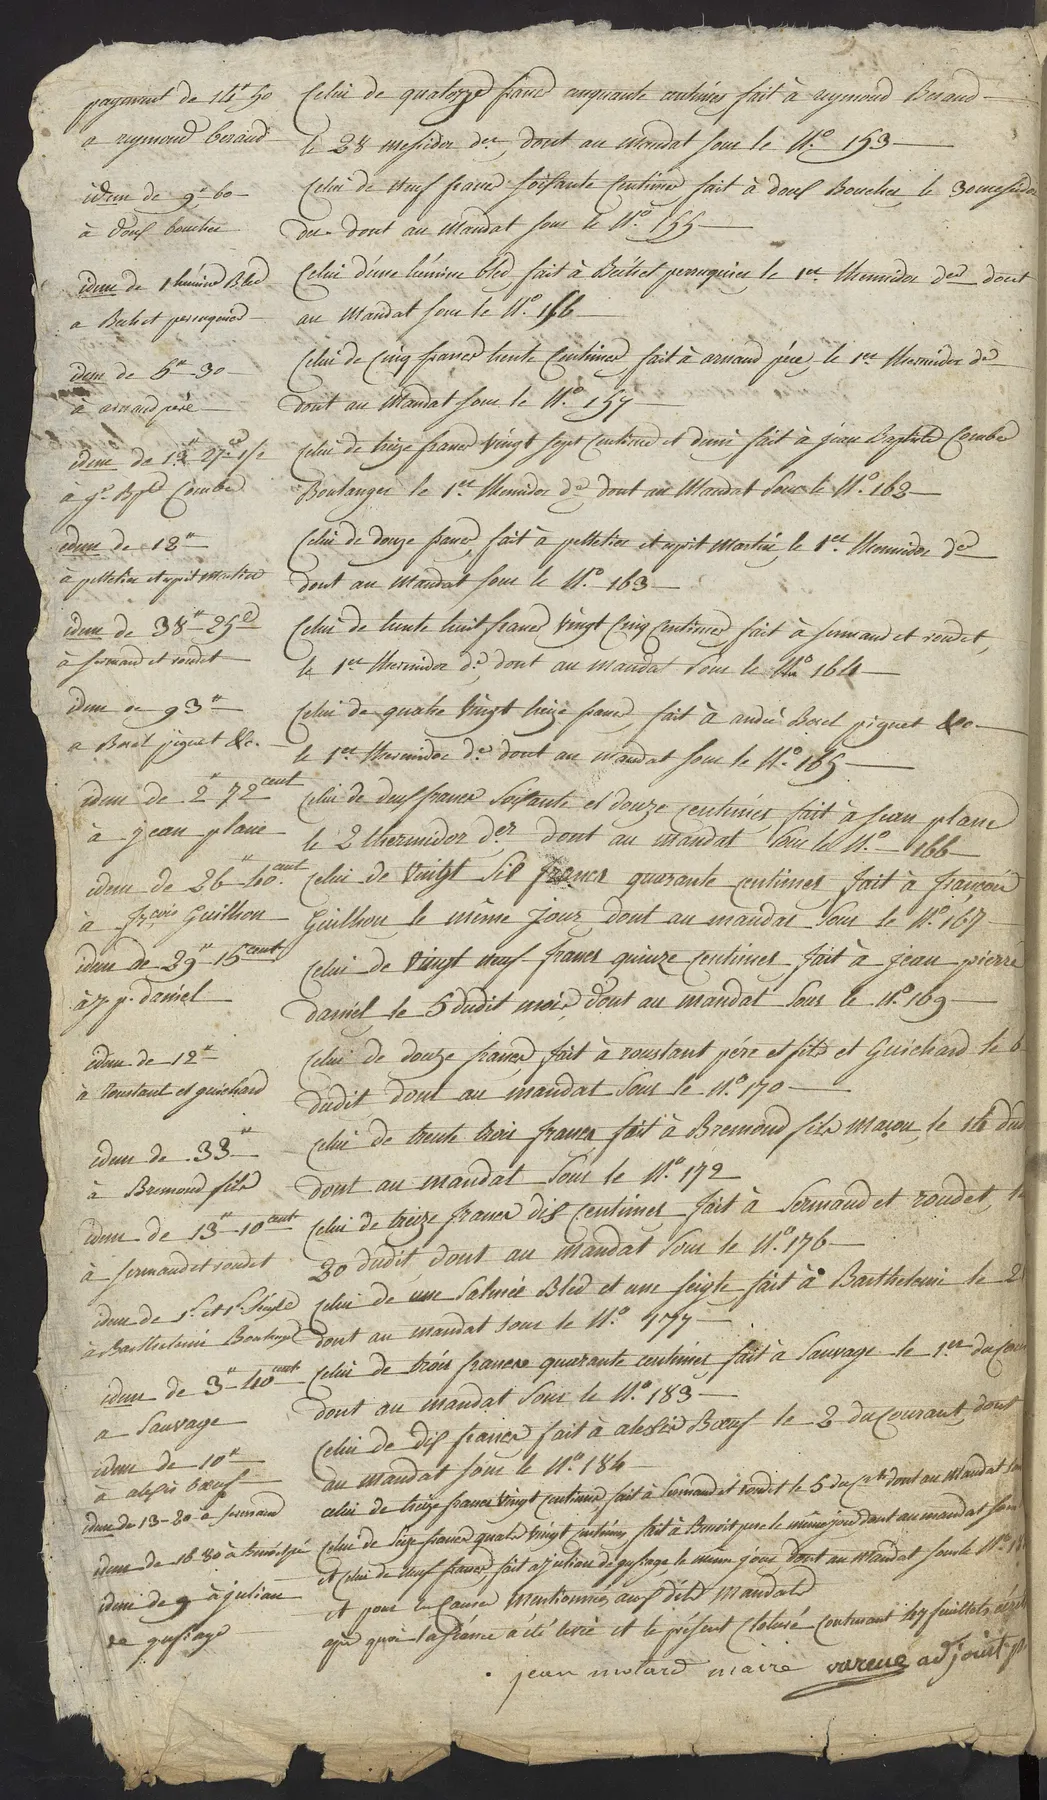 payement de 14ᶠᶠ 50
a reymond beraud
Celui de quatorze franc cinquante centimes fait à reymond Beraud
le 28 messidor der, dont au mandat sous le N.º 153
idem de 9ᶠᶠ 60
à boucher
Celui de neuf francs soisante Centimes fait à Boucher le 30 messidor
der dont au Mandat sous le N.º 155
idem de 1 hémine Bled
a perruquier
Celui d'une hémine bled, fait à perruquier le 1er thermidor der dont
au Mandat sous le N.º 156
idem de 5ᶠᶠ 30
à arnaud père
Celui de Cinq francs trente Centimes, fait à arnaud père, le 1er thermidor der
dont au Mandat sous le N.º 157
idem de 27 1/2
à jn Bpte Combe
Celui de treize francs vingt sept Centimes et demi fait à jean Baptiste Combe
Boulanger le 1er thermidor der dont au Mandat sous le N.º 162
idem de 12ᶠᶠ
à pelletier et martin
Celui de douze francs, fait à pelletier et Martin, le 1er thermidor der
dont au Mandat sous le N.º 163
idem de 38ᶠᶠ 25c
à sermand et roudet
Celui de trente huit francs vingt Cinq Centimes, fait à sermand et roudet,
le 1er thermidor der, dont au mandat sous le No 164
idem de 93ᶠᶠ
a Borel piquet &c.
Celui de quatre vingt treize francs, fait à andré Borel piquet &c
le 1er thermidor der dont au mandat sous le N.º 165
idem de 2ᶠᶠ 72 cent
à jean plane
celui de deux francs soisante et douze centimes fait à jean plane
le 2 thermidor der dont au mandat sous le N.º 166
idem de 26ᶠᶠ 40 cent
à frçois Guilhon
celui de vingt six francs quarante centimes fait à françois
Guilhon le même jour dont au mandat sous le N.º 167
idem de 29ᶠᶠ 15 cent
à j. p. daniel
celui de vingt neuf francs quinze centimes fait à jean pierre
daniel le 5 dudit mois, dont au mandat sous le N.º 169
idem de 12ᶠᶠ
à roustant et guichard
celui de douze francs, fait à roustant père et fils et Guichard le 6
dudit dont au mandat sous le N.º 170
idem de 33ᶠᶠ
à Bremond fils
celui de trente trois francs fait à Bremond fils maçon, le 14 dud
dont au mandat sous le N.º 172
idem de 13ᶠᶠ 10 cent
à sermand et roudet
celui de treize francs dix centimes fait à sermand et roudet, le
30 dudit, dont au mandat sous le N.º 176
idem de 1s. et 1s. seigle
à Barthelemi Boulanger
celui de une salmée Bled et une seigle fait à Barthelemi le 2
dont au mandat sous le N.º 177
idem de 3ᶠᶠ 40 cent
a sauvage
celui de trois francs quarante centimes fait à sauvage le 1er du Cour
dont au mandat sous le N.º 183
idem de 10ᶠᶠ
à alexis bœuf
celui de dix francs fait à alexis Bœuf le 2 du Courant, dont
au mandat sous le N.º 184
idem de 13-20 a sermand
celui de treize francs vingt centimes fait à sermand et roudet le 5 du dont au Mandat sous
idem de 16 80 à
Celui de seize francs quatre vingt centimes fait à Benoit père le même jour dont au mandat sous
idem de 9 à julian
et Celui de neuf francs fait a julian, le même jour dont au Mandat sous le N.º
et pour les Causes Mentionnées aux dits Mandats
après quoi la séance a été levée et le présent Cloturé contenant 47 feuillets
jean motard maire vareue adjoint